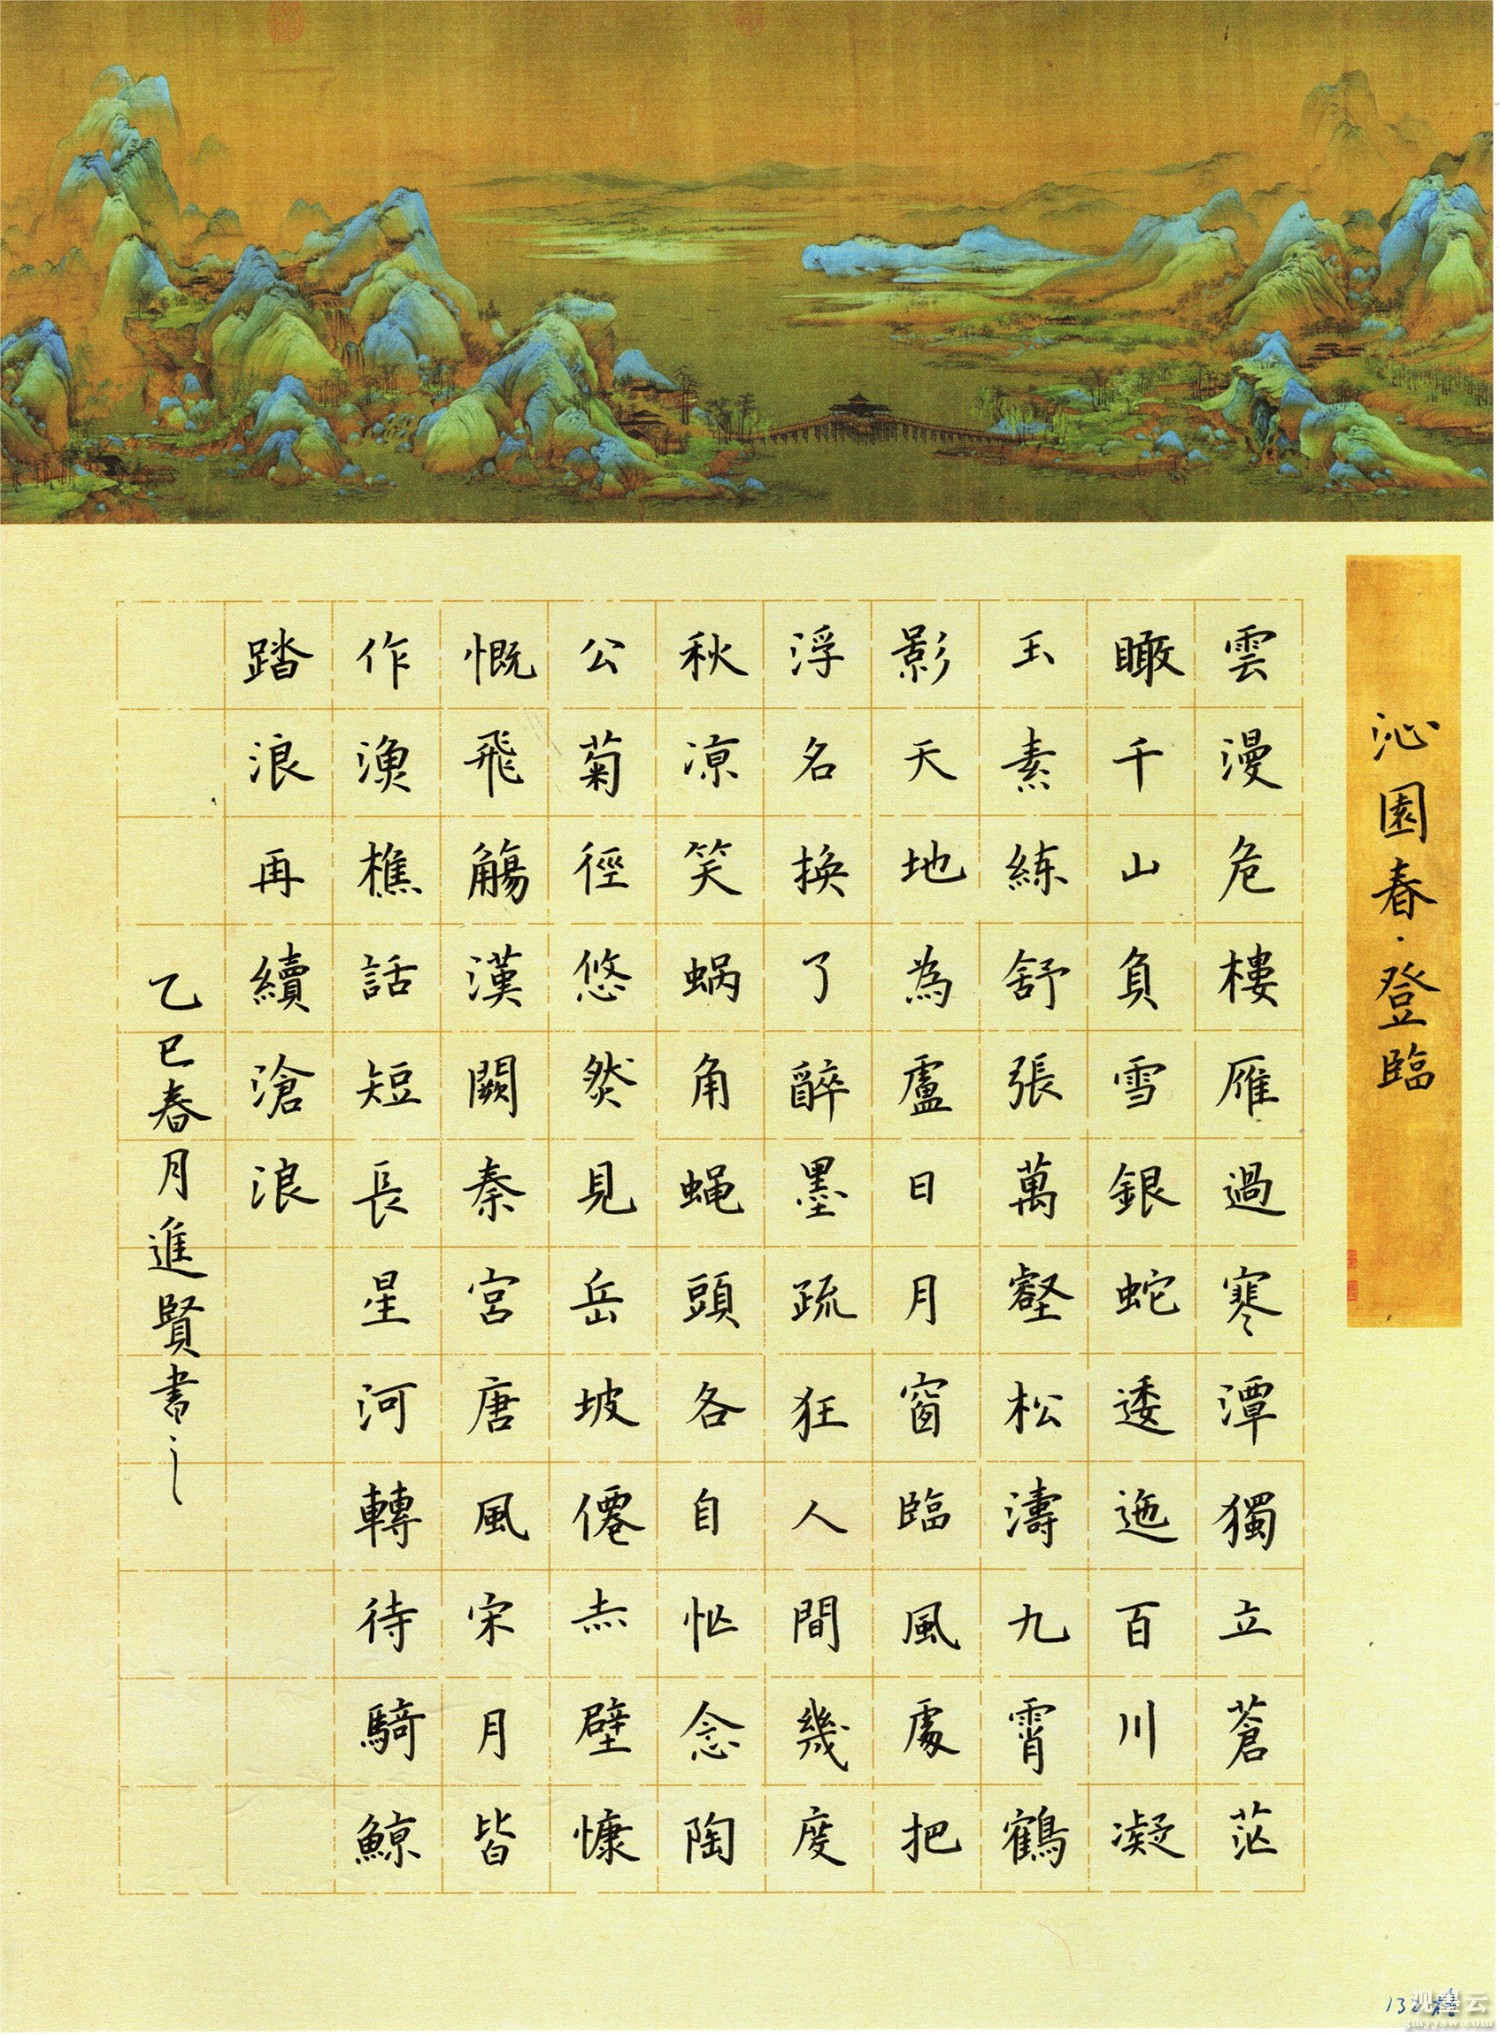 沁園春·登臨
雲漫危樓雁過寒潭獨立蒼茫
瞰千山負雪銀蛇逶迤百川凝
玉素練舒張萬壑松濤九霄鶴
影天地為廬日月窗臨風處把
浮名換了醉墨疏狂人間幾度
秋凉笑蜗角蝇頭各自忙念陶
公菊徑悠然見岳坡僊赤壁慷
慨飛觴漢闕秦宮唐風宋月皆
作漁樵話短長星河轉待騎鯨
踏浪再續滄浪
乙巳春月進賢書之
观墨云
gmyysw.com